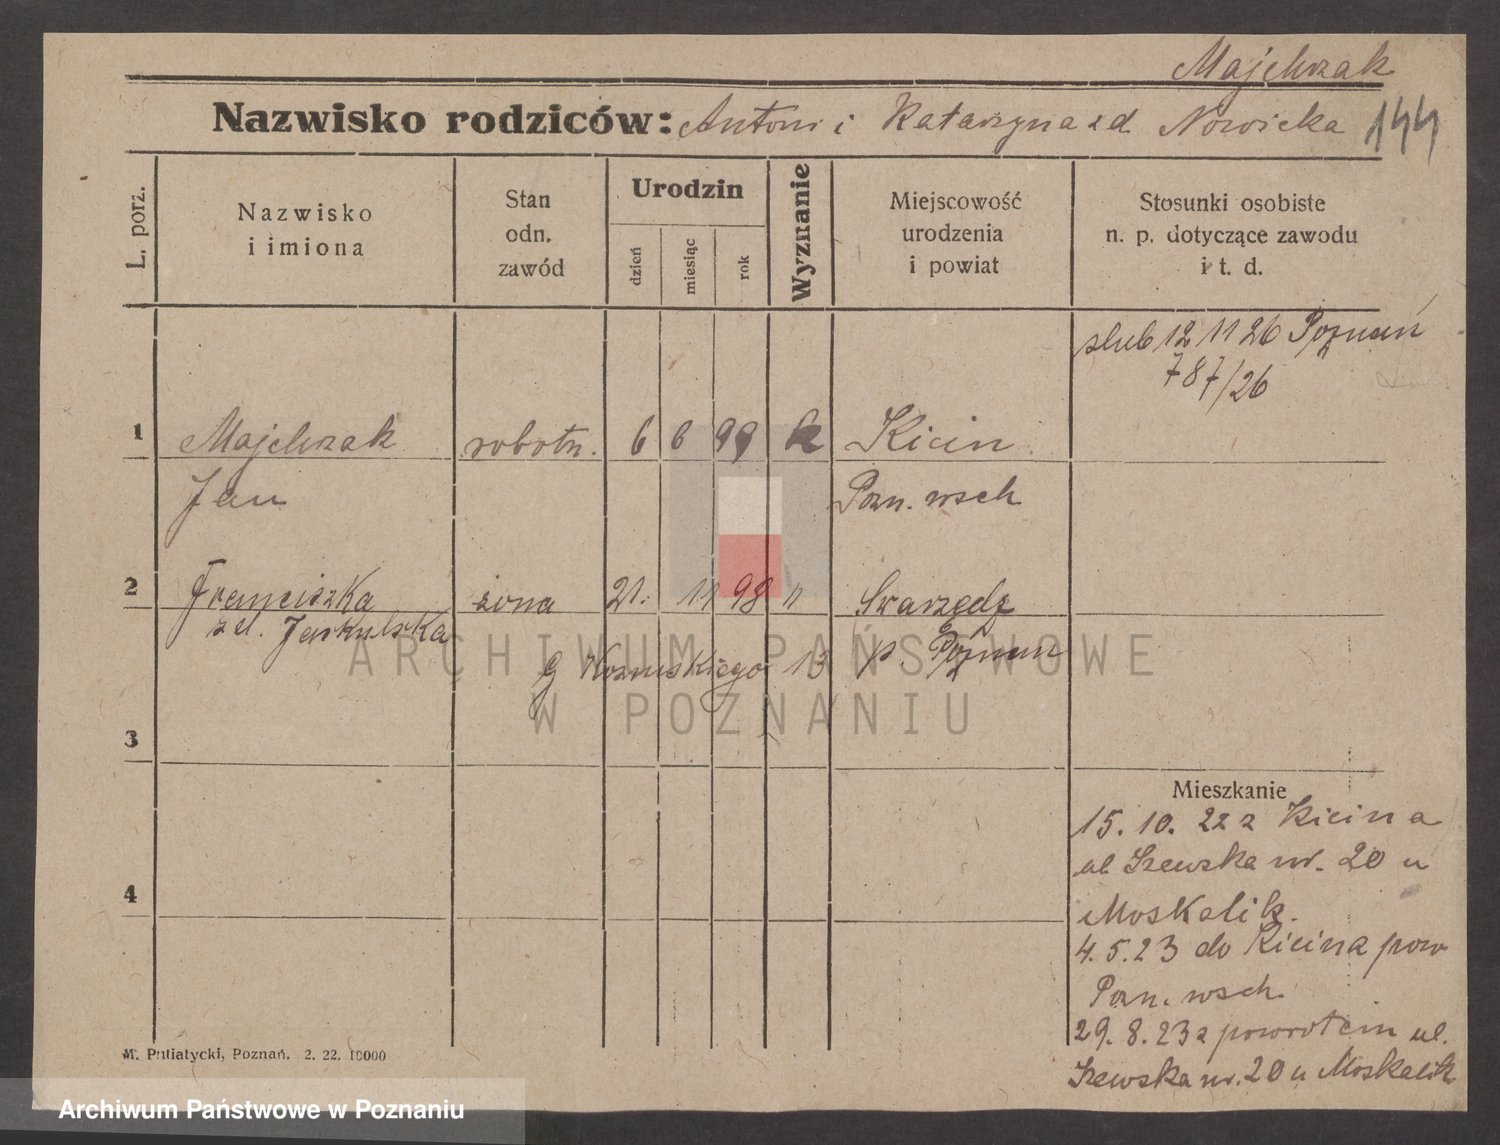 Majchrzak
Nazwisko rodziców: Antoni i Katarzyna zd. Nowicka 144
L. porz.
Nazwisko
i imiona
Stan
odn.
zawód
Urodzin
dzień
miesiąc
rok
Wyznanie
Miejscowość
urodzenia
i powiat
Stosunki osobiste
n. p. dotyczące zawodu
i t. d.
slub 12 11 26 Poznań
787/26
1 Majchrzak robotn. 6 6 99 k Kicin
Jan Pozn. wsch
2 Franciszka żona 21. 11 98 " Swarzędz
zd. Jaskulska p. Poznań
13
3
Mieszkanie
15. 10. 22 z Kicina
ul Szewska nr. 20 u
4 Moskalik.
4. 5. 23 do Kicina pow
Pozn. wsch.
29. 8. 23 z powrotem ul.
Szewska nr. 20 u Moskalik
M. Putiatycki, Poznań. 2. 22. 10000
ARCHIWUM PAŃSTWOWE
W POZNANIU
Archiwum Państwowe w Poznaniu